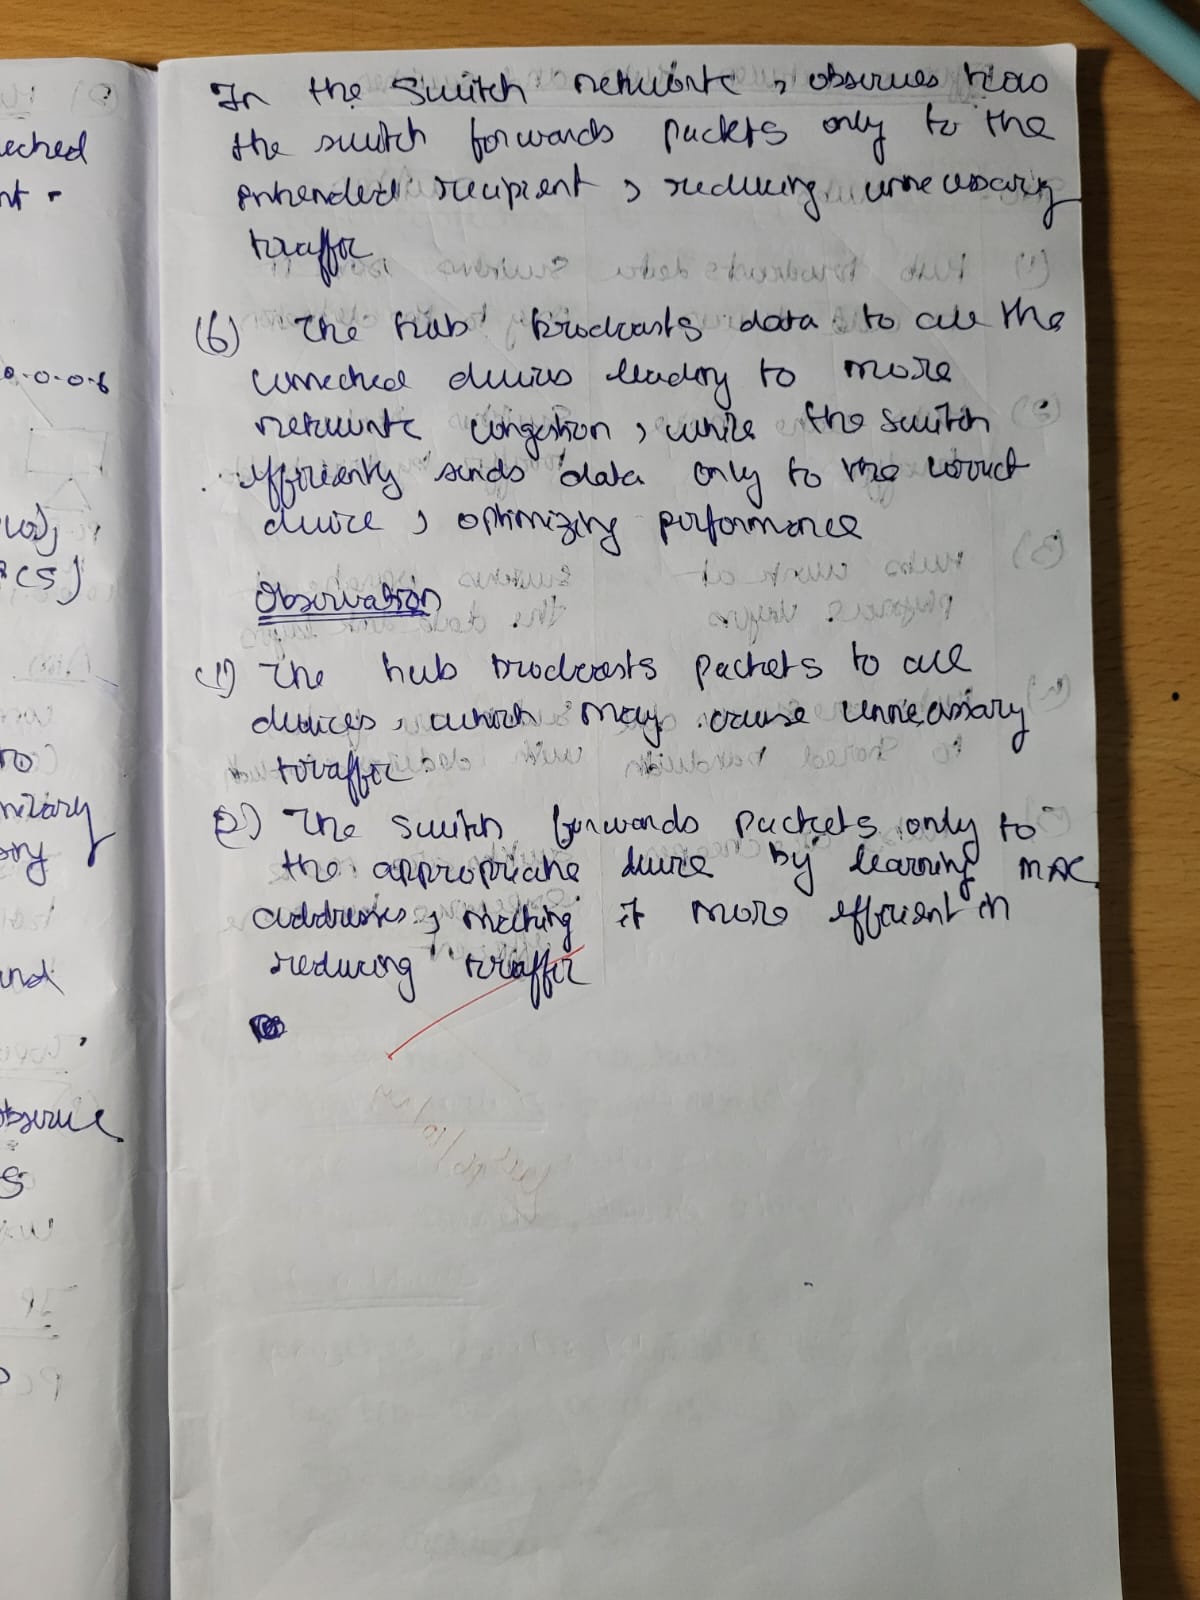 In the Switch network, observes how
the switch forwards packets only to the
intended recipient, reducing unnecessary
traffic
(6) The hub brodcasts data to all the
connected devices leading to more
network congestion, while the switch
efficiently sends data only to the correct
device, optimizing performance
Observation
(1) The hub brodcasts packets to all
devices, which may cause unnecassary
traffic
(2) The switch forwards packets only to
the appropriate device by learning MAC
addresses, making it more efficient in
reducing traffic
ected
nt -
0.0.0.6
(5)
to
sory
and
observe
S